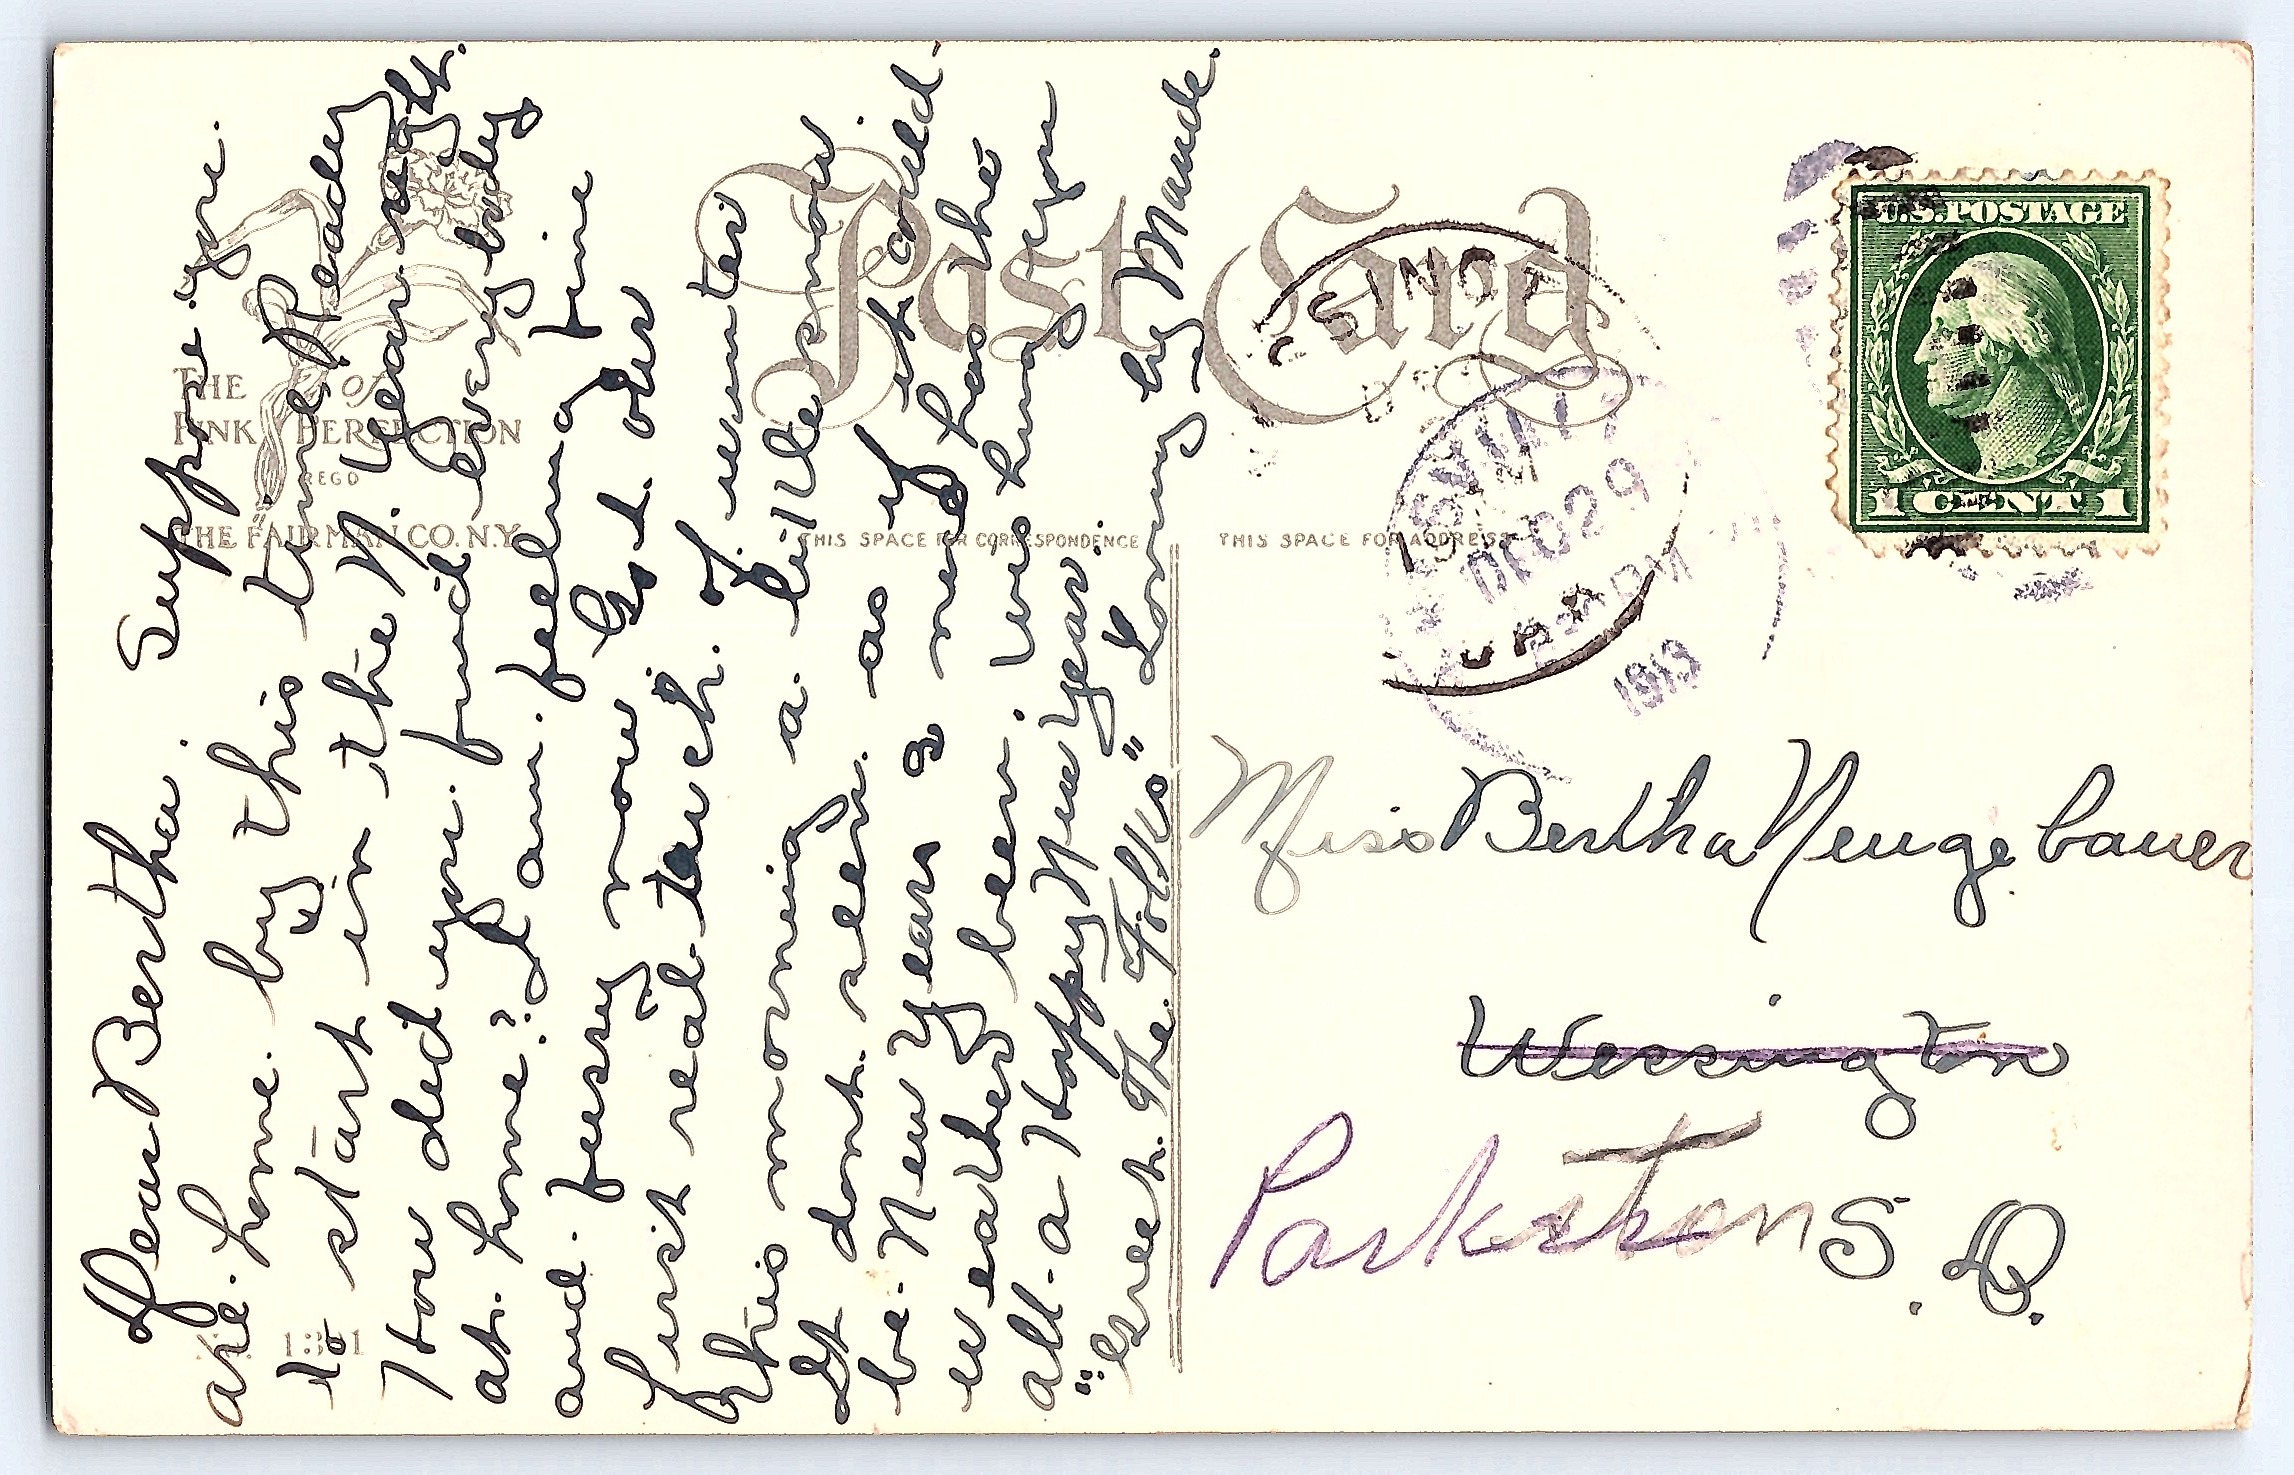 Dear Bertha. Suppose you
are. home. by this time Ready
to start in the N. Year right.
How did you. find every body
at. home? I am. feeling fine
and. fussy now Got our
first real. touch. of winter
this morning a. little snow.
It dont. seem. as if it could-
be. New Years & nice has the
weather been. We hung you
all- a Happy New Year.
"Greet. The. Folks" Loving by Maude.
THE PINK of PERFECTION
REGO
THE FAIRMAN CO. N.Y.
Post Card
THIS SPACE FOR CORRESPONDENCE
THIS SPACE FOR ADDRESS
U.S. POSTAGE
1 CENT 1
DEC 29
1913
Miss Bertha Neugebauer
Wessington
Parkston S. D.